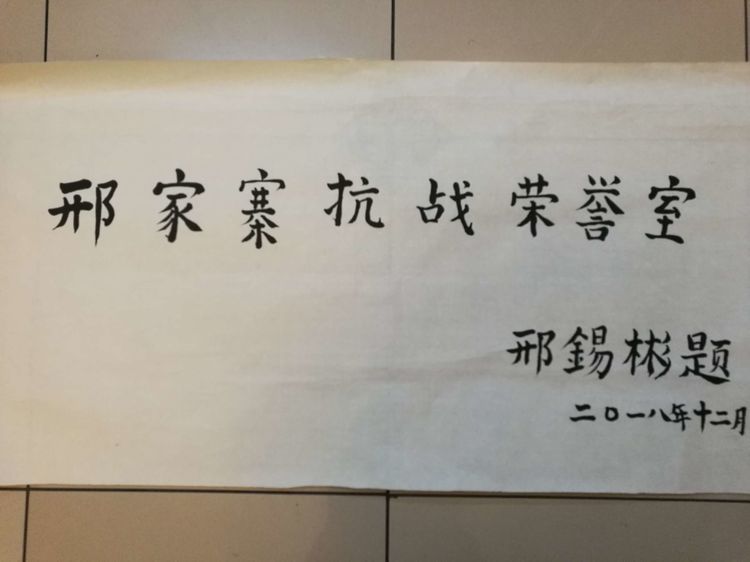 邢家寨抗战荣誉室
邢錫彬题
二〇一八年十二月